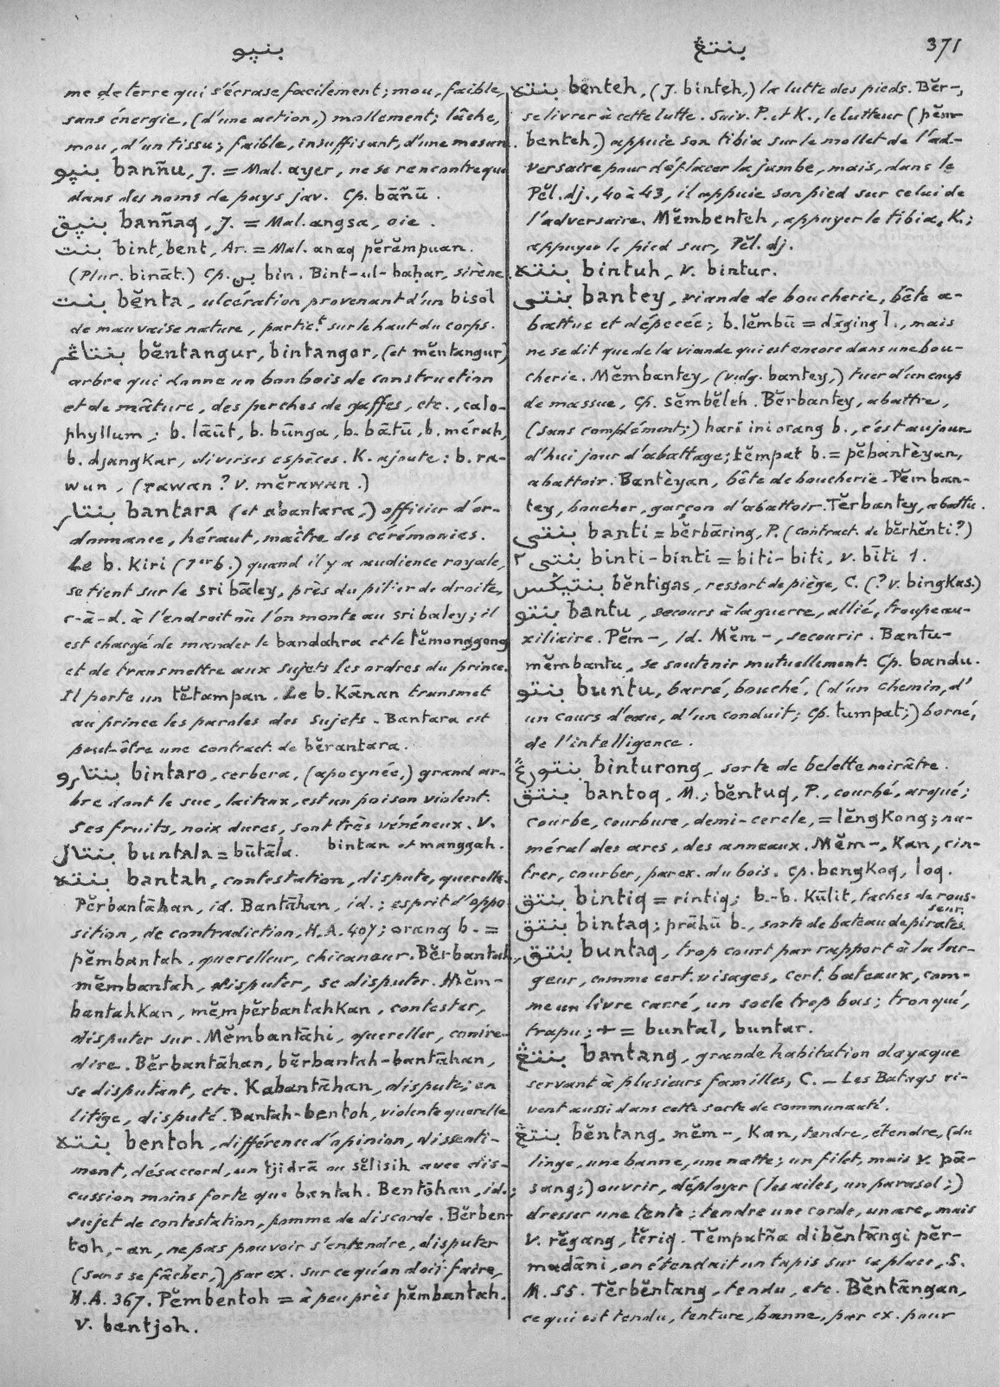 بنپو
بنتڠ
371
me de terre qui s'écrase facilement; mou, faible,
sans énergie, (d'une action,) mollement; lâche,
mou, d'un tissu; faible, insuffisant, d'une mesure.
بنپو banñu, J. = Mal. ayer, ne se rencontre que
dans des noms de pays jav. Cp. bāñū.
بنپق banñaq, J. = Mal. angsa, oie.
بنت bint, bent, Ar. = Mal. anaq pĕrĕmpuan.
(Plur. bināt.) Cp. بن bin. Bint-ul-baḥar, sirène.
بنت bĕnta, ulcération provenant d'un bisol
de mauvaise nature, partict. sur le haut du corps.
بنتاڠر bĕntangur, bintangor, (et mĕntangur)
arbre qui donne un bon bois de construction
et de mâture, des perches de gaffes, etc., calo-
phyllum; b. lāūt, b. būnga, b. bātū, b. mérah,
b. djangkar, diverses espèces. K. ajoute: b. ra-
wun, (rawan? v. mĕrawan.)
بنتار bantara (et abantara,) officier d'or-
donnance, héraut, maître des cérémonies.
Le b. Kiri (1er b.) quand il y a audience royale,
se tient sur le sri bāley, près du pilier de droite,
c-à-d. à l'endroit où l'on monte au sri baley; il
est chargé de mander le bandahra et le tĕmonggong
et de transmettre aux sujets les ordres du prince.
Il porte un tĕtampan. Le b. Kānan transmet
au prince les paroles des sujets. Bantara est
peut-être une contract. de bĕrantara.
بنتارو bintaro, cerbera, (apocynée,) grand ar-
bre dont le suc, laiteux, est un poison violent.
Ses fruits, noix dures, sont très vénéneux. V.
bintan et manggah.
بنتال buntala = būtāla.
بنته bantah, contestation, dispute, querelle.
Pĕrbantāhan, id. Bantāhan, id.; esprit d'oppo
sition, de contradiction, H.A. 407; orang b. =
pĕmbantah, querelleur, chicaneur. Bĕrbantah,
mĕmbantah, disputer, se disputer. Mĕm-
bantahkan, mĕmpĕrbantahkan, contester,
disputer sur. Mĕmbantāhi, quereller, contre-
dire. Bĕrbantāhan, bĕrbantah-bantāhan,
se disputant, etc. Kabantāhan, dispute; en
litige, disputé. Bantah-bentoh, violente querelle
بنته bentoh, différence d'opinion, dissenti-
ment, désaccord, un tjidrā ou sĕlisih avec dis-
cussion moins forte que bantah. Bentōhan, id.;
sujet de contestation, pomme de discorde. Bĕrben-
toh, -an, ne pas pouvoir s'entendre, disputer
(sans se fâcher,) par ex. sur ce qu'on doit faire,
H.A. 367. Pĕmbentoh = à peu près pĕmbantah.
v. bentjoh.
بنته benteh, (J. binteh,) la lutte des pieds. Bĕr-,
se livrer à cette lutte. Suiv. P. et K., le lutteur (pĕm-
benteh,) appuie son tibia sur le mollet de l'ad-
versaire pour déplacer la jambe, mais, dans le
Pĕl. dj., 40 à 43, il appuie son pied sur celui de
l'adversaire. Mĕmbenteh, appuyer le tibia, K.;
appuyer le pied sur, Pĕl. dj.
بنته bintuh, v. bintur.
بنتى bantey, viande de boucherie, bête a-
battue et dépecée; b. lĕmbū = dāging l., mais
ne se dit que de la viande qui est encore dans une bou-
cherie. Mĕmbantey, (vulg. bantey,) tuer d'un coup
de massue, Cp. sĕmbĕleh. Bĕrbantey, abattre,
(sans complément;) hari ini orang b., c'est aujour-
d'hui jour d'abattage; tĕmpat b. = pĕbantèyan,
abattoir. Bantèyan, bête de boucherie. Pĕmban-
tey, boucher, garçon d'abattoir. Tĕrbantey, abattu.
بنتى banti = bĕrbāring, P. (contract. de bĕrhĕnti?)
بنتى٢ binti-binti = biti-biti, v. bīti 1.
بنتيڬس bĕntigas, ressort de piège, C. (? v. bingkas.)
بنتو bantu, secours à la guerre, allié, troupe au-
xiliaire. Pĕm-, id. Mĕm-, secourir. Bantu-
mĕmbantu, se soutenir mutuellement. Cp. bandu.
بنتو buntu, barré, bouché, (d'un chemin, d'
un cours d'eau, d'un conduit; cp. tumpat;) borné,
de l'intelligence.
بنتورڠ binturong, sorte de belette noirâtre.
بنتق bantoq, M.; bĕntuq, P., courbé, arqué;
courbe, courbure, demi-cercle, = lĕngkong; nu-
méral des arcs, des anneaux. Mĕm-, kan, cin-
trer, courber, par ex. du bois. Cp. bengkoq, loq.
بنتق bintiq = rintiq; b.-b. Kūlit, taches de rous-
seur.
بنتق bintaq; prāhū b., sorte de bateau de pirates.
بنتق buntaq, trop court par rapport à la lar-
geur, comme cert. visages, cert. bateaux, com-
me un livre carré, un socle trop bas; tronqué,
trapu; + = buntal, buntar.
بنتڠ bantang, grande habitation dayaque
servant à plusieurs familles, C. — Les Bataqs vi-
vent aussi dans cette sorte de communauté.
بنتڠ bĕntang, mĕm-, kan, tendre, étendre, (du
linge, une banne, une natte; un filet, mais v. pā-
sang;) ouvrir, déployer (les ailes, un parasol;)
dresser une tente; tendre une corde, un arc, mais
v. rĕgang, tĕriq. Tĕmpatña dibĕntāngi pĕr-
madāni, on étendait un tapis sur sa place, S.
M. 55. Tĕrbĕntang, tendu, etc. Bĕntāngan,
ce qui est tendu, tenture, banne, par ex. pour